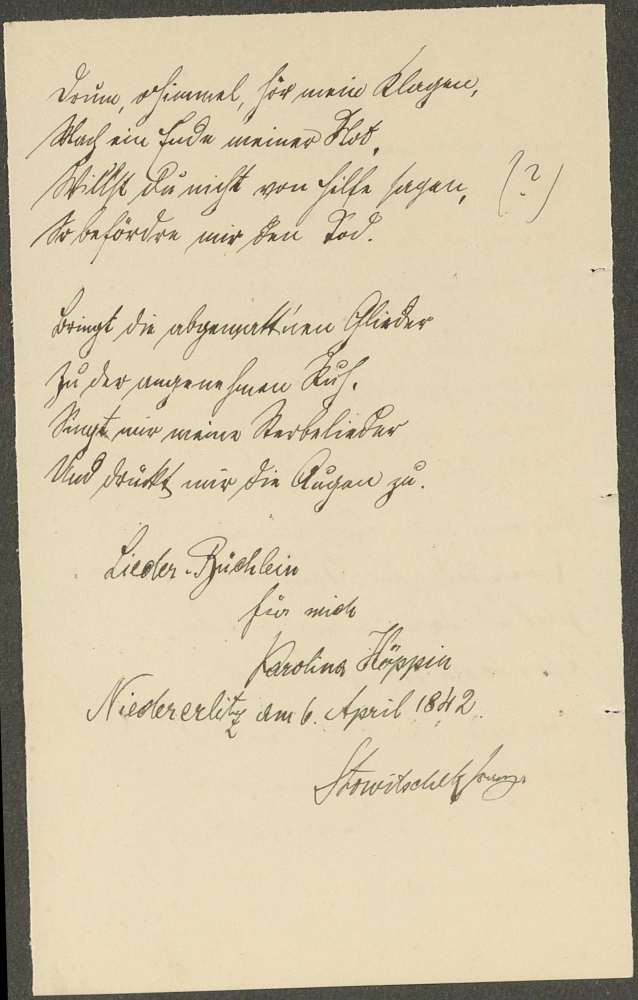 Drum, o Himmel, hör mein Klagen,
Mach ein Ende meiner Not.
Willst du nicht von Hilfe sagen, (?)
So befördre mir den Tod.
Bringt die abgematt'nen Glieder
Zu der angenehmen Ruh.
Singt mir meine Sterbelieder
Und drückt mir die Augen zu.
Lieder-Büchlein
für mich
Karolina Höppin
Niedererlitz am 6. April 1842.